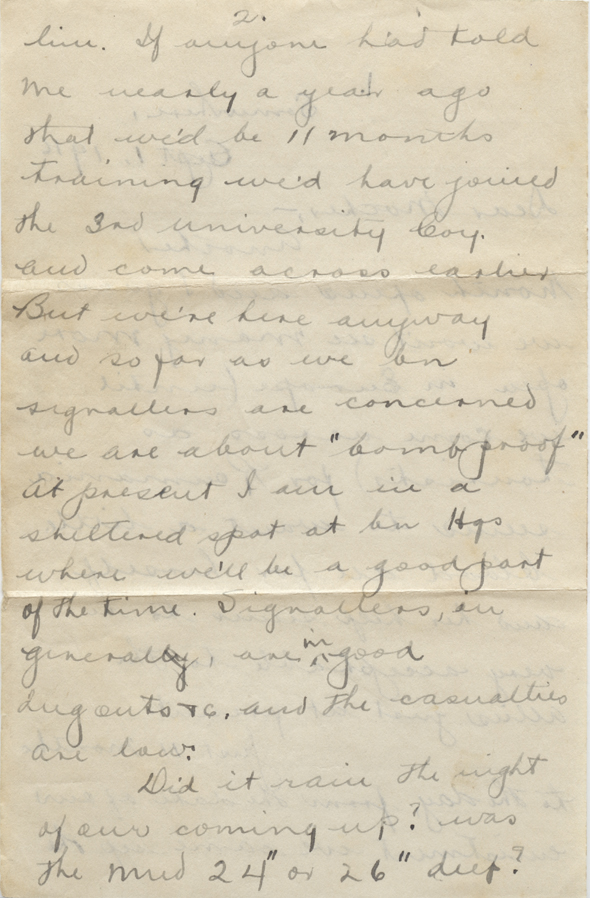 2.
line. If anyone had told
me nearly a year ago
that we'd be 11 months
training we'd have joined
the 3rd university Coy.
and come across earlier
But we're here anyway
and so far as we bn
signallers are concerned
we are about "bomb proof"
At present I am in a
sheltered spot at bn Hqs
where we'll be a good part
of the time. Signallers, in
general, are in good
dugouts &c. and the casualties
are low.
Did it rain the night
of our coming up? was
the mud 24" or 26" deep?